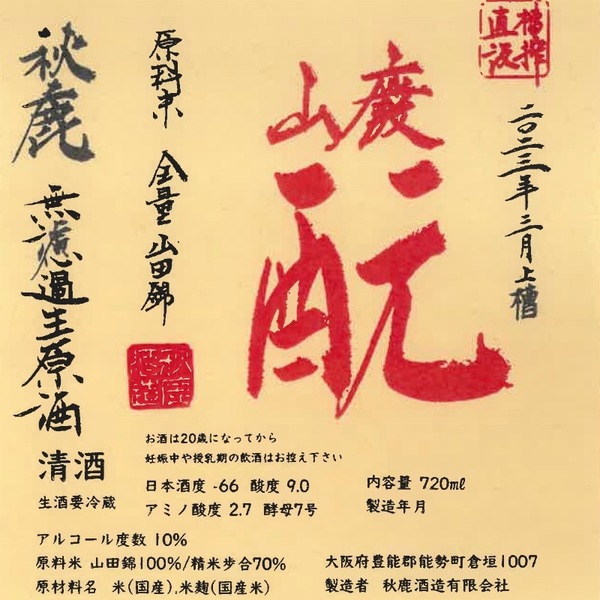 槽搾
直汲
二〇二三年三月上槽
山廢
酛
原料米 全量山田錦
秋鹿
無濾過生原酒
清酒
生酒要冷蔵
お酒は20歳になってから
妊娠中や授乳期の飲酒はお控え下さい
日本酒度 -66 酸度 9.0
アミノ酸度 2.7 酵母7号
内容量 720ml
製造年月
アルコール度数 10%
原料米 山田錦100%/精米歩合70%
原材料名 米(国産),米麹(国産米)
大阪府豊能郡能勢町倉垣1007
製造者 秋鹿酒造有限会社